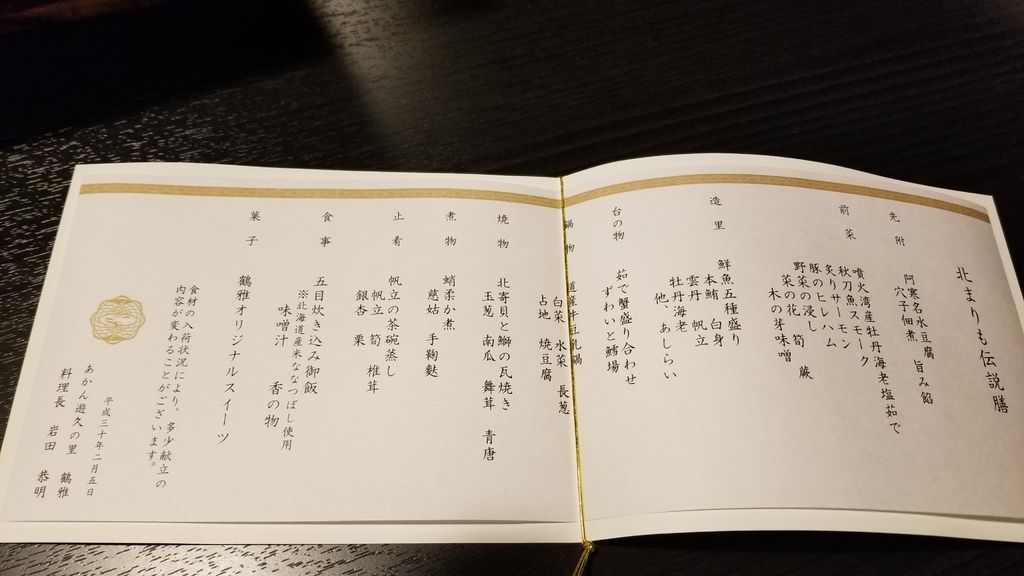 北まりも伝説膳
先附
阿寒名水豆腐 旨み餡
穴子佃煮
前菜
噴火湾産牡丹海老塩茹で
秋刀魚スモーク
炙りサーモン
豚のヒレハム
野菜の浸し 蕨
菜の花 筍
木の芽味噌
造里
鮮魚五種盛り
本鮪 白身
雲丹 帆立
牡丹海老
他、あしらい
台の物
茹で蟹盛り合わせ
ずわいと鱈場
鍋物
道産牛豆乳鍋
白菜 水菜 長葱
占地 焼豆腐
焼物
北寄貝と鰤の瓦焼き
玉葱 南瓜 舞茸 青唐
煮物
蛸柔か煮
慈姑 手鞠麩
止肴
帆立の茶碗蒸し
帆立 筍 椎茸
銀杏 栗
食事
五目炊き込み御飯
※北海道産米ななつぼし使用
味噌汁 香の物
菓子
鶴雅オリジナルスイーツ
食材の入荷状況により、多少献立の
内容が変わることがございます。
平成三十年二月五日
あかん遊久の里 鶴雅
料理長 岩田 恭明